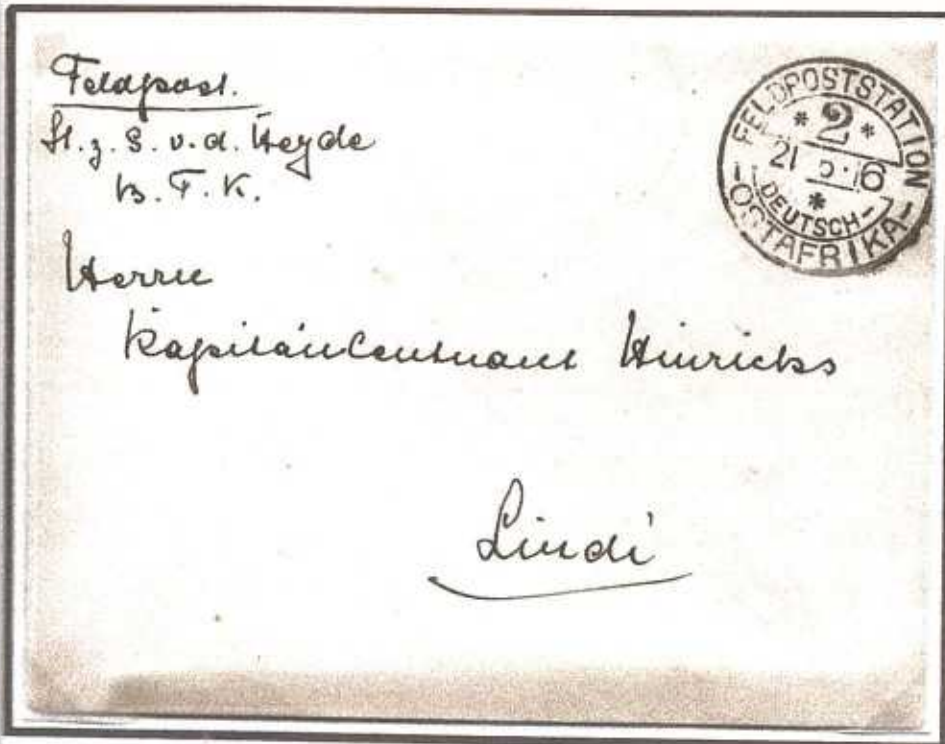 Feldpost.
Lt. z. S. v. d. Heyde
B. F. K.
FELDPOSTSTATION
* 2 *
21 5 16
*
DEUTSCH-
-OSTAFRIKA-
Herrn
Kapitänleutnant Hinrichs
Lindi